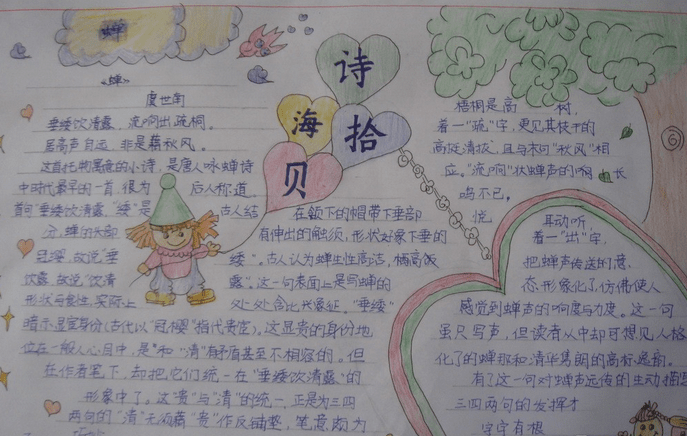 蝉
诗
海
拾
贝
《蝉》
虞世南
垂緌饮清露,流响出疏桐。
居高声自远,非是藉秋风。
这首托物寓意的小诗,是唐人咏蝉诗
中时代最早的一首,很为 后人称道
首句“垂緌饮清露,“緌”是 古人结
在颔下的帽带下垂部
分,蝉的头部 有伸出的触须,形状好象下垂的
冠缨,故说“垂 緌”。古人认为蝉生性高洁,栖高饮
饮露,故说“饮清 露”。这一句表面上是写蝉的
形状与食性,实际上 处处含比兴象征,“垂緌”
暗示显宦身份(古代以“冠缨”指代贵宦)。这显贵的身份地
位在一般人心目中,是“和“清”有矛盾甚至不相容的。但
在作者笔下,却把它们统一在“垂緌饮清露”的
形象中了。这“贵”与“清”的统一,正是为三四
两句的“清”无须藉“贵”作反铺垫,笔意颇为
梧桐是高 树,
着一“疏”字,更见其枝干的
高挺清拔,且与末句“秋风”相
应。“流响”状蝉声的 长
鸣不已,
悦 耳动听,
着一“出”字,
把蝉声传送的意
态形象化了,仿佛使人
感觉到蝉声的响度与力度。这一句
虽只写声,但读者从中却可想见人格
化了的蝉那和清华隽朗的高标逸韵。
有了这一句对蝉声远传的生动描
三四两句的发挥才
字字有根